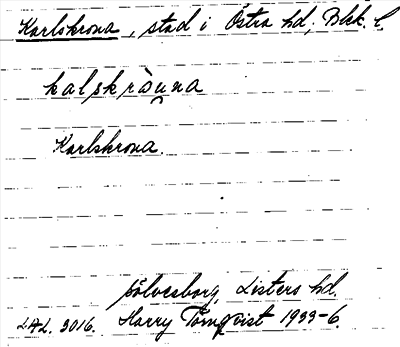 Karlskrona, stad i Östra hd, Blek. l.
kalskròu̯na
Karlskrona.
Sölvesborg, Listers hd.
LAL. 3016. Harry Törnqvist 1933-6.